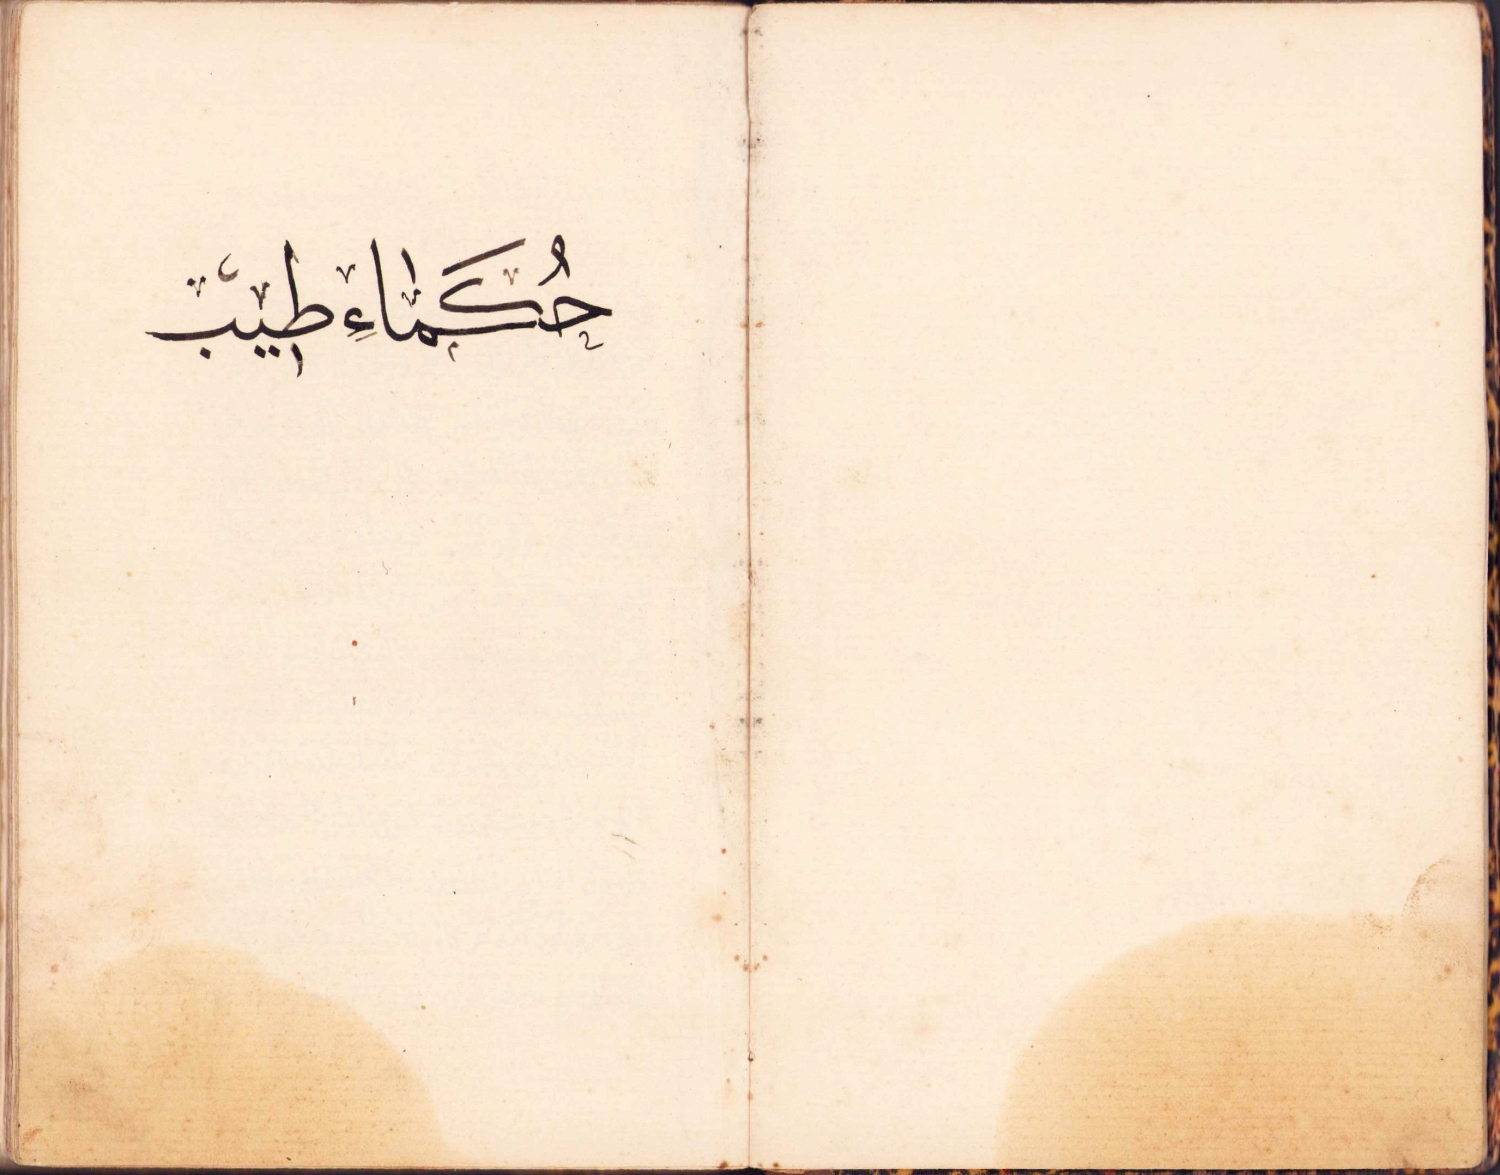 حُكَمَاءِ طيب